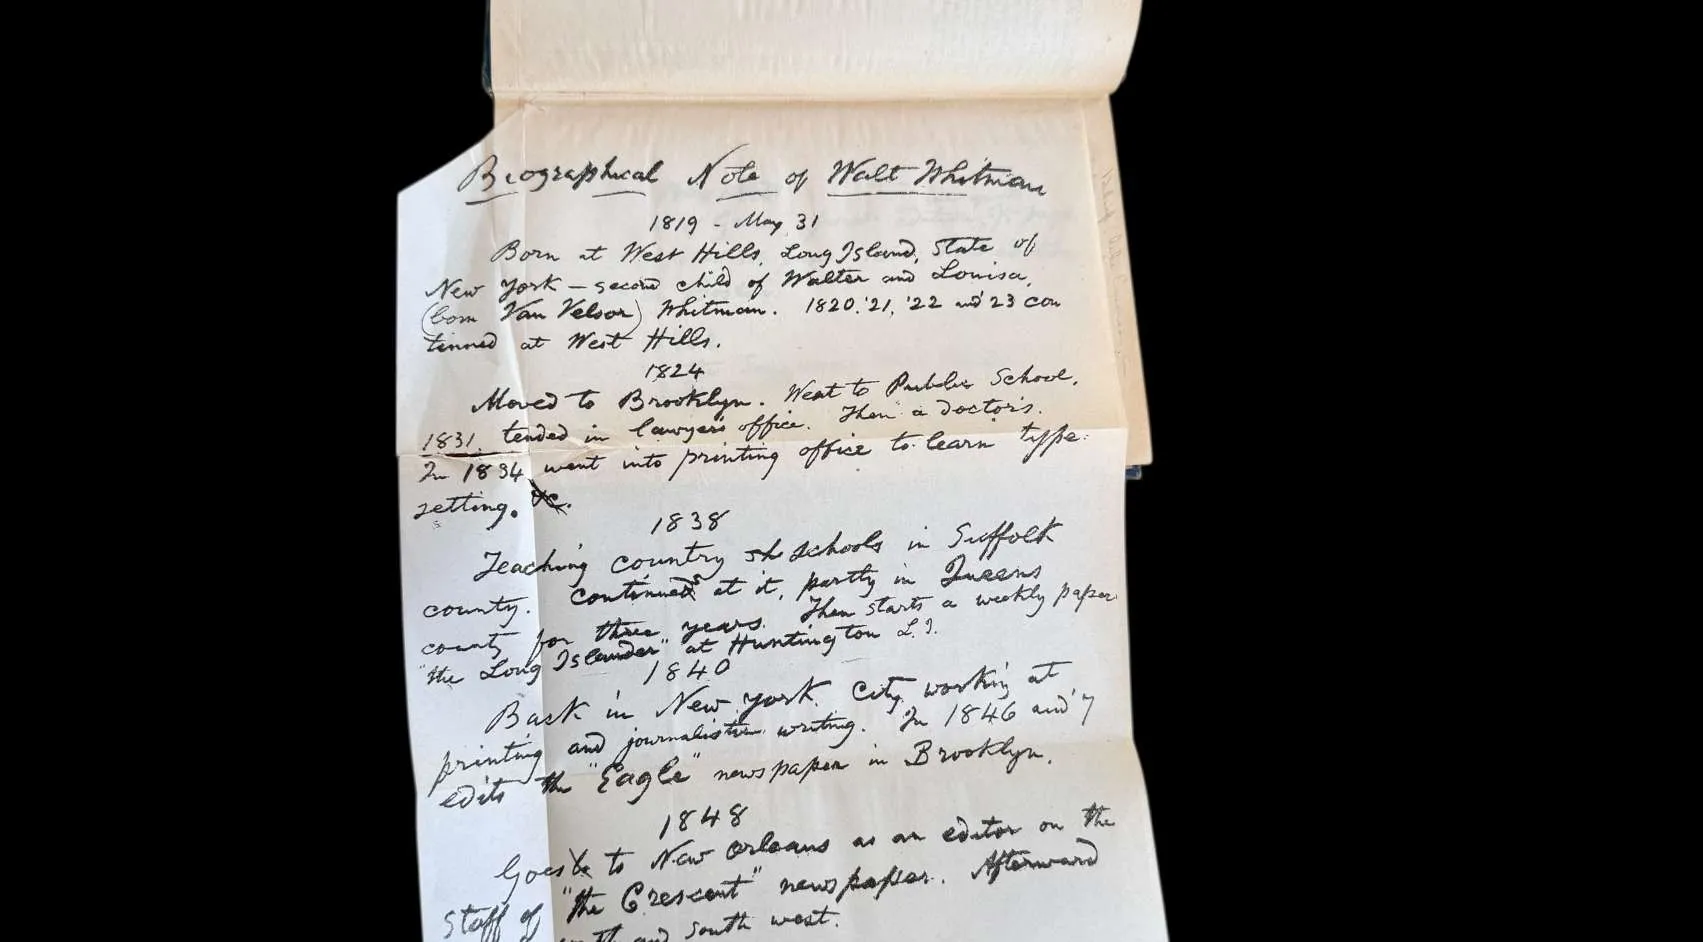 Biographical Note of Walt Whitman
1819 - May 31
Born at West Hills, Long Island, State of
New York — second child of Walter and Louisa,
(born Van Velsor) Whitman. 1820, '21, '22 and '23 con
tinued at West Hills.
1824
Moved to Brooklyn. Went to Public School.
1831, tended in lawyer's office. Then a doctor's.
In 1834 went into printing office to learn type
setting. &c.
1838
Teaching country sh schools in Suffolk
county. continued at it, partly in Queens
county for three years. Then starts a weekly paper
"the Long Islander" at Huntington L.I.
1840
Back in New York City, working at
printing and journalistic writing. In 1846 and '7
edits the "Eagle" newspaper in Brooklyn.
1848
Goes to New Orleans as an editor on the
staff of "the Crescent" newspaper. Afterward
and south west.